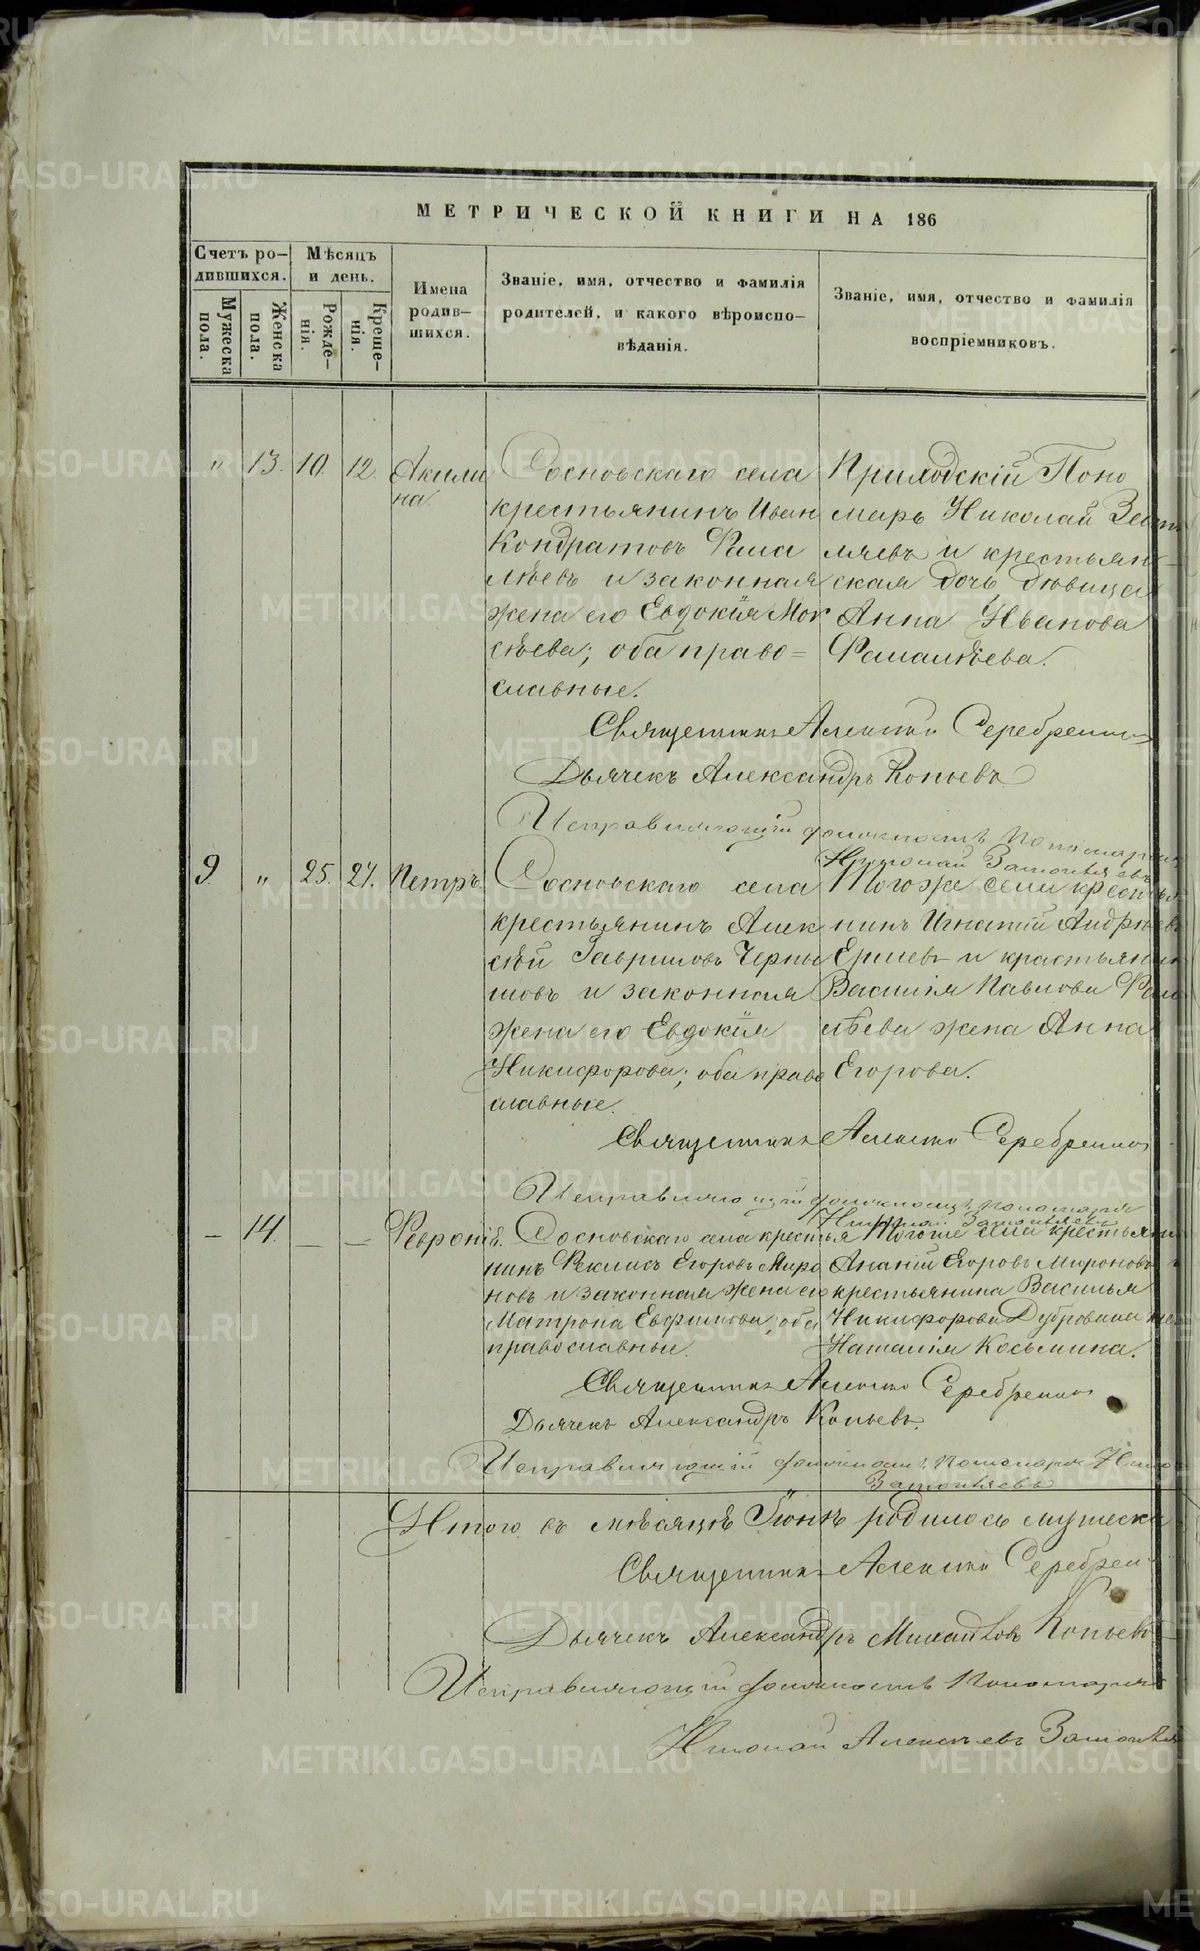 МЕТРИЧЕСКОЙ КНИГИ НА 186
Счетъ ро-
дившихся.
Мѣсяцъ
и день.
Мужеска
пола.
Женска
пола.
Рожде-
нія.
Креще-
нія.
Имена
родив-
шихся.
Званіе, имя, отчество и фамилія
родителей, и какого вѣроиспо-
вѣданія.
Званіе, имя, отчество и фамилія
воспріемниковъ.
" 13. 10. 12.
Акили
на.
Сосновскаго села
крестьянинъ Иван
Кондратовъ Фама
лѣевъ и законная
жена его Евдокія Мок
сѣева; оба право=
славные.
Приходскій Поно
марь Николай
и крестьян
ская дочь дѣвица
Анна Иванова
Фамалѣева.
Священникъ Алексій
Дьячекъ Александръ Копьевъ
Исправляющій должность Пономаря
Николай
9 " 25. 27.
Петръ.
Сосновскаго села
крестьянинъ Алек
сѣй Гавриловъ Черны
шовъ и законная
жена его Евдокія
Никифорова; оба право
славные.
Тогоже села крестья
нинъ Игнатій Андрѣевъ
и крестьянин
Василія Павлова Фама
лѣева жена Анна
Егорова.
Священникъ Алексій
Исправляющій должность пономаря
Николай
– 14. – –
Февронія.
Сосновскаго села крестья
нинъ Феклисъ Егоровъ Миро
новъ и законная жена его
Матрона Евфимова, оба
православные.
Тогоже села крестьянин
Ананій Егоровъ Мироновъ и
крестьянина Василья
Никифорова Дубровина же
Наталія Косьмина.
Священникъ Алексій
Дьячекъ Александръ Копьевъ.
Исправляющій должность пономаря
Итого въ мѣсяцѣ Іюнѣ родилось мужеска
Священникъ Алексій
Дьячекъ Александръ Михайловъ Копьевъ
Исправляющій должность Пономаря
Николай Алексѣевъ
METRIKI.GASO-URAL.RU